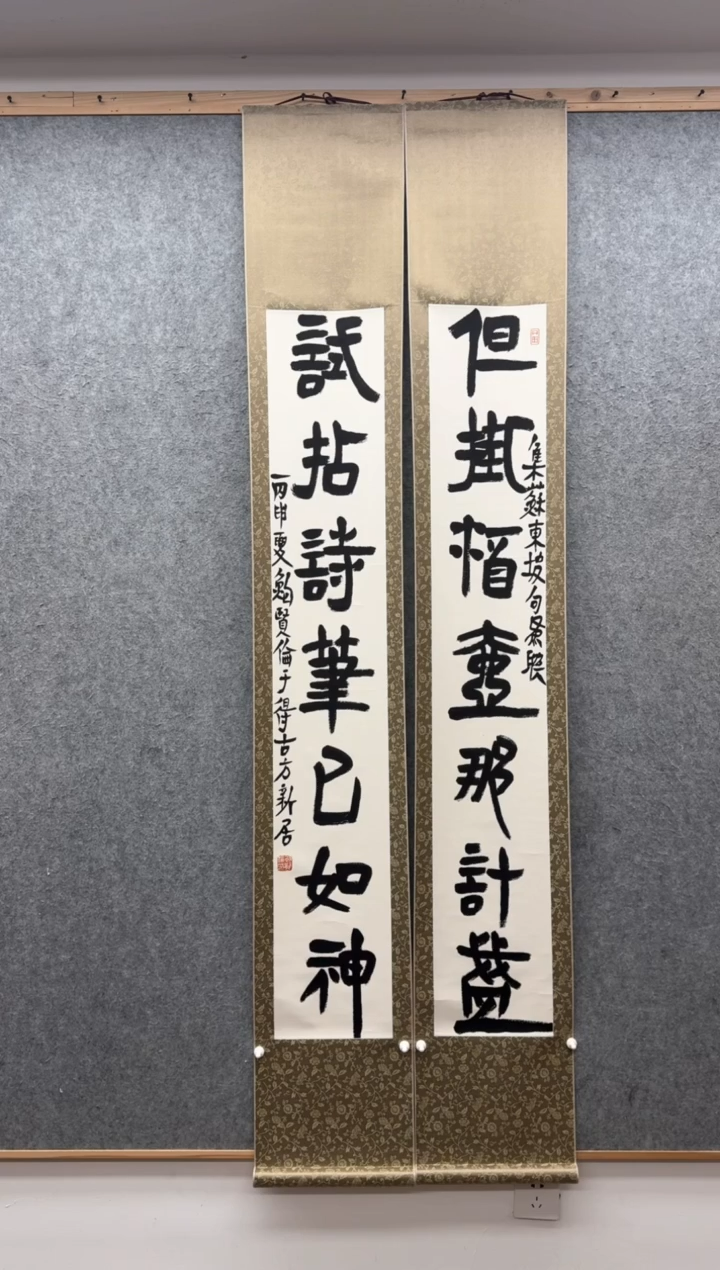 但掛酒壺那計盞
集蘇東坡句為聯
試拈詩筆已如神
丙申夏鮑賢倫于得古方新居